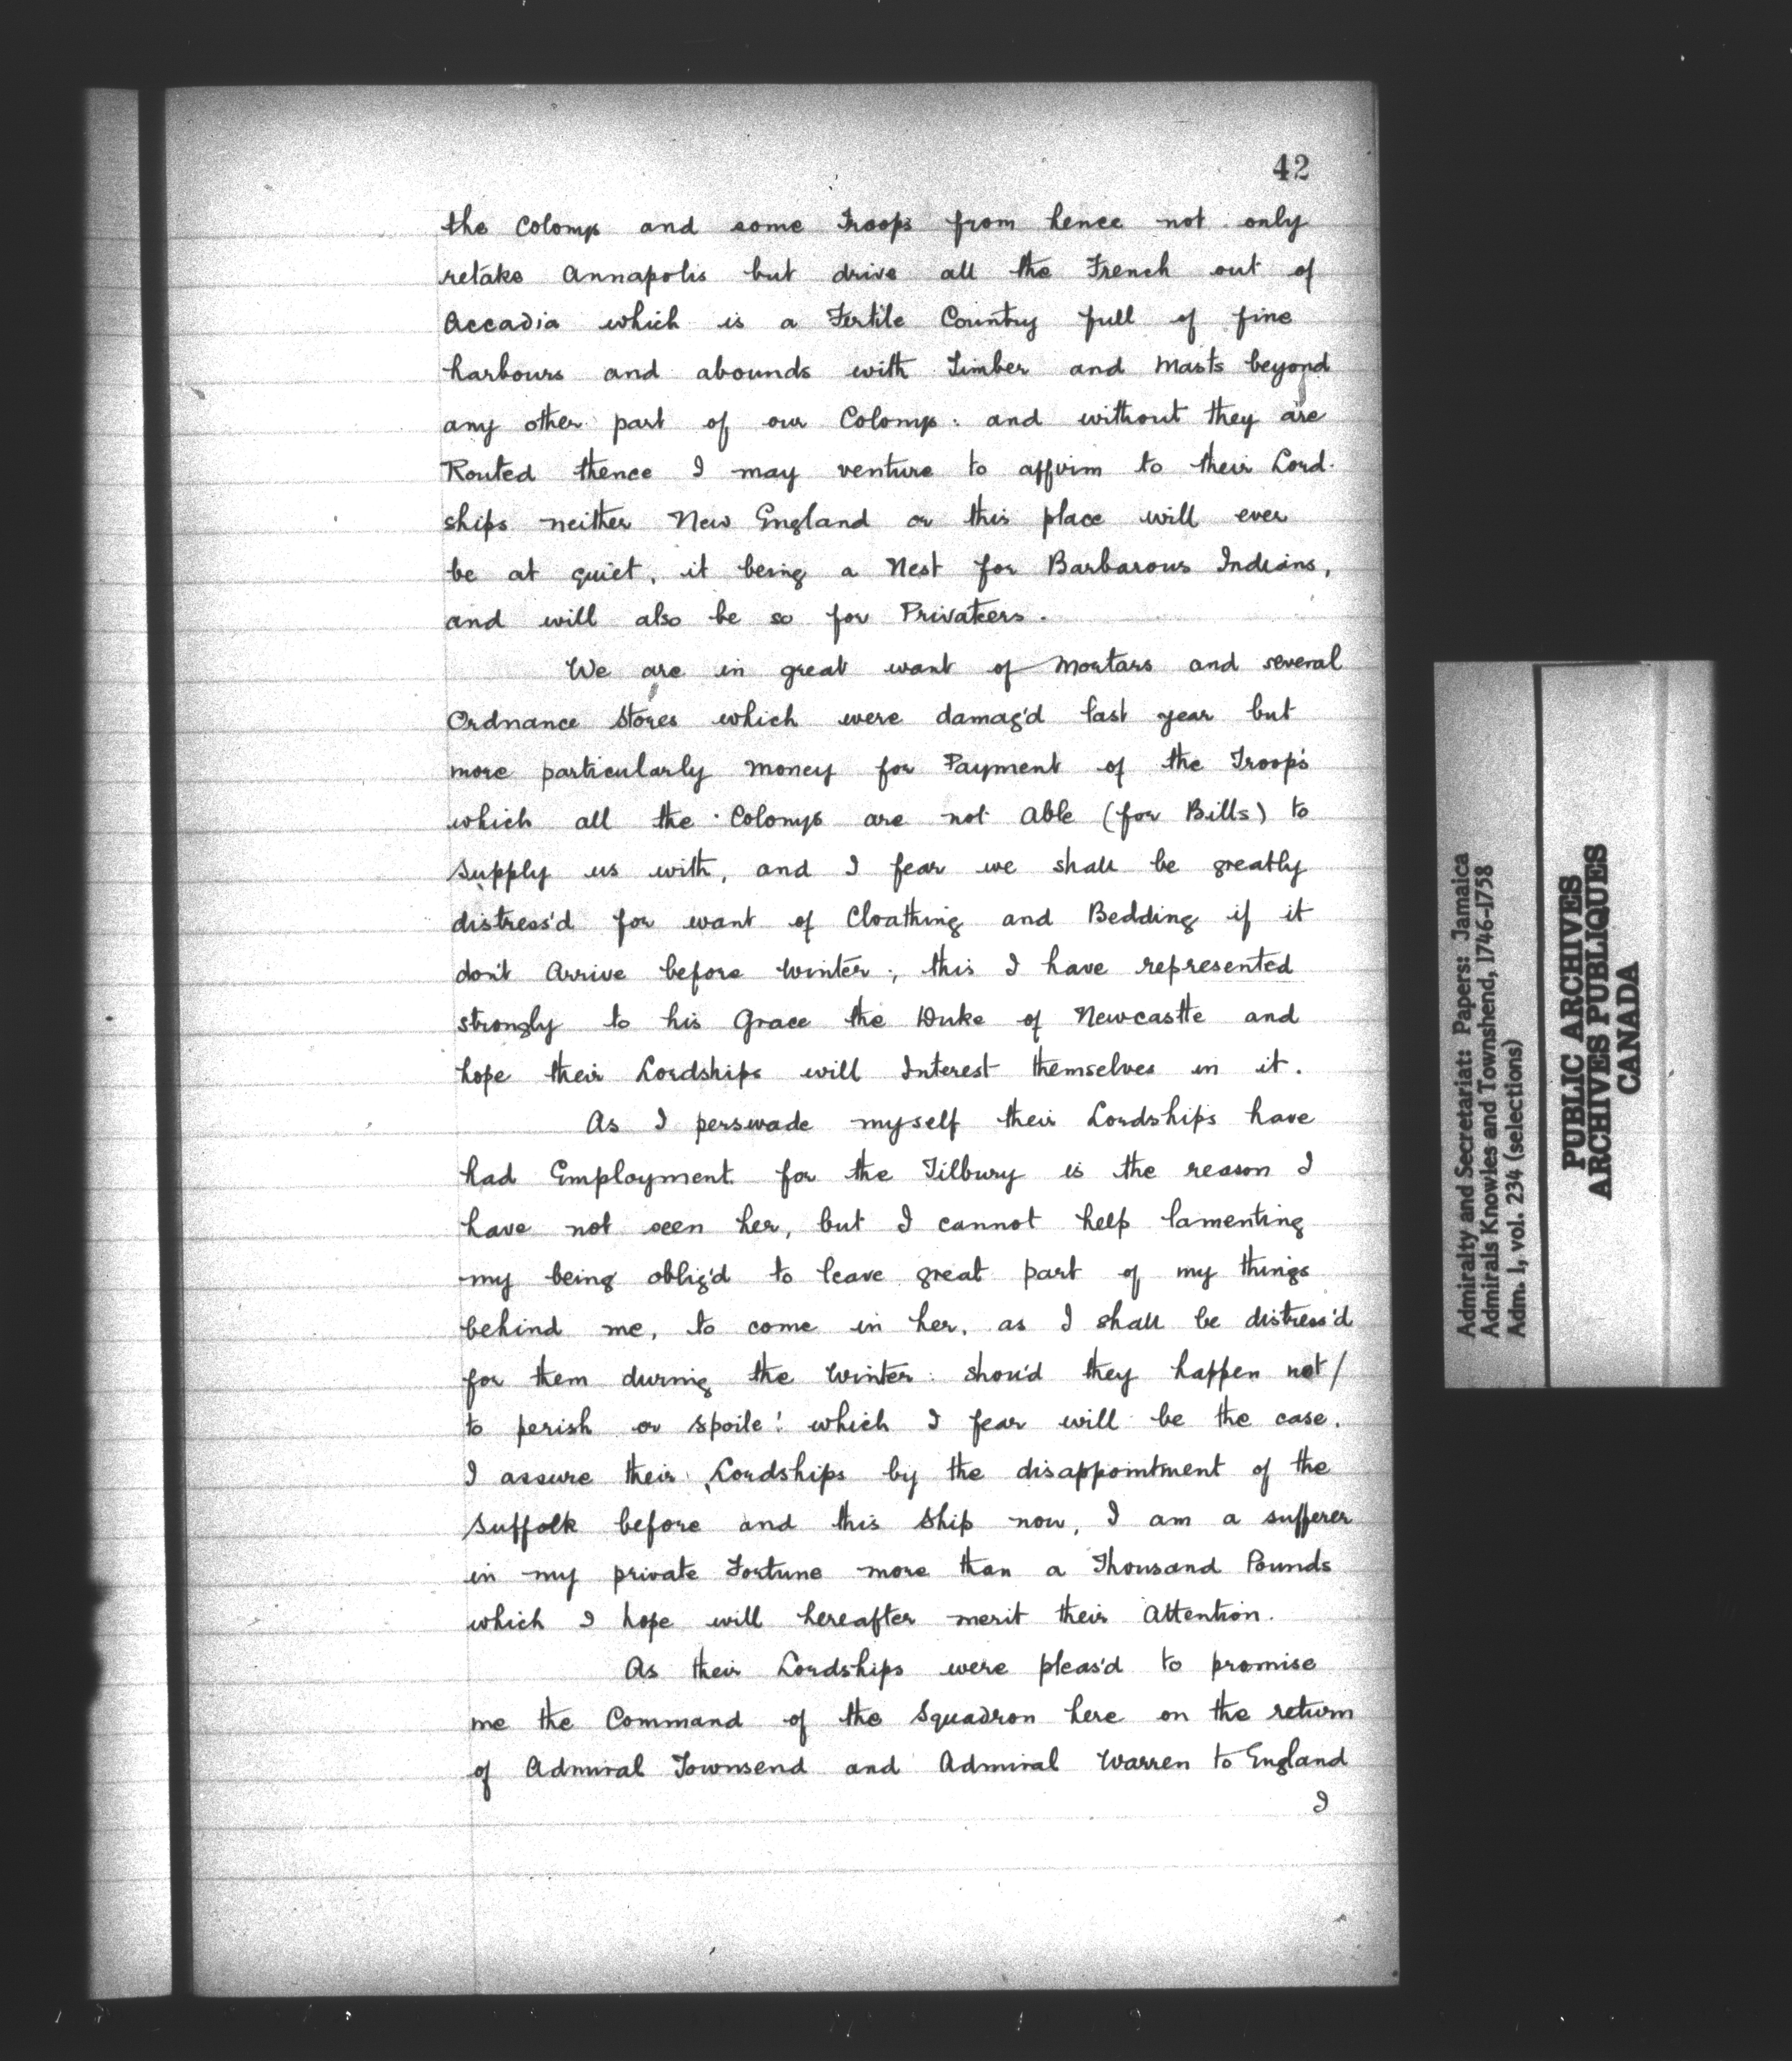 42
the Colonys and some Troops from hence not only
retake Annapolis but drive all the French out of
Accadia which is a Fertile Country full of fine
harbours and abounds with Timber and Masts beyond
any other part of our Colonys: and without they are
Routed thence I may venture to affirm to their Lord-
ships neither New England or this place will ever
be at quiet, it being a Nest for Barbarous Indians,
and will also be so for Privateers.
We are in great want of Mortars and several
Ordnance Stores which were damag'd last year but
more particularly Money for Payment of the Troops
which all the Colonys are not Able (for Bills) to
supply us with, and I fear we shall be greatly
distress'd for want of Cloathing and Bedding if it
don't Arrive before Winter; this I have represented
strongly to his Grace the Duke of Newcastle and
hope their Lordships will Interest themselves in it.
As I perswade myself their Lordships have
had Employment for the Tilbury is the reason I
have not seen her, but I cannot help lamenting
my being oblig'd to leave great part of my things
behind me, to come in her, as I shall be distress'd
for them during the Winter: shou'd they happen not/
to perish or spoile! which I fear will be the case.
I assure their Lordships by the disappointment of the
Suffolk before and this Ship now, I am a sufferer
in my private Fortune more than a Thousand Pounds
which I hope will hereafter merit their Attention.
As their Lordships were pleas'd to promise
me the Command of the Squadron here on the return
of Admiral Townsend and Admiral Warren to England
I
Admiralty and Secretariat: Papers: Jamaica
Admirals Knowles and Townshend, 1746-1758
Adm. 1, vol. 234 (selections)
PUBLIC ARCHIVES
ARCHIVES PUBLIQUES
CANADA